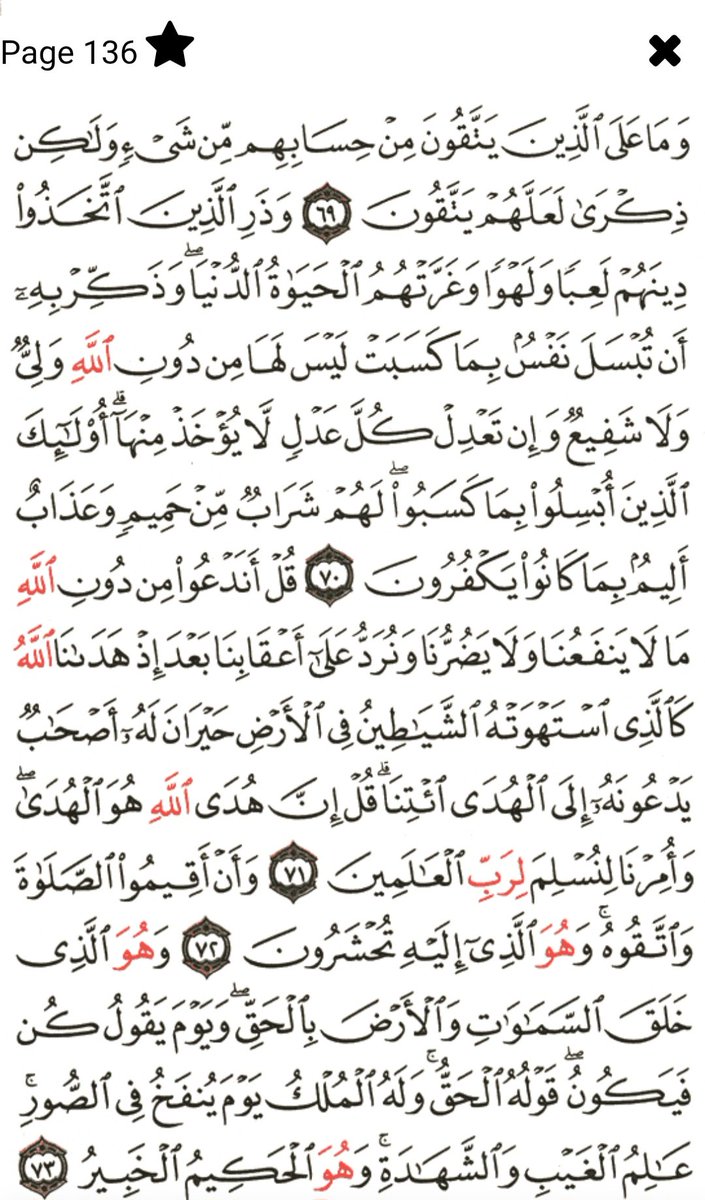 Page 136
وَمَا عَلَى ٱلَّذِينَ يَتَّقُونَ مِنْ حِسَابِهِم مِّن شَىْءٍ وَلَٰكِن
ذِكْرَىٰ لَعَلَّهُمْ يَتَّقُونَ ٦٩ وَذَرِ ٱلَّذِينَ ٱتَّخَذُوا۟
دِينَهُمْ لَعِبًا وَلَهْوًا وَغَرَّتْهُمُ ٱلْحَيَوٰةُ ٱلدُّنْيَا ۖ وَذَكِّرْ بِهِۦٓ
أَن تُبْسَلَ نَفْسٌۢ بِمَا كَسَبَتْ لَيْسَ لَهَا مِن دُونِ ٱللَّهِ وَلِىٌّ
وَلَا شَفِيعٌ وَإِن تَعْدِلْ كُلَّ عَدْلٍ لَّا يُؤْخَذْ مِنْهَآ ۗ أُو۟لَٰٓئِكَ
ٱلَّذِينَ أُبْسِلُوا۟ بِمَا كَسَبُوا۟ ۖ لَهُمْ شَرَابٌ مِّنْ حَمِيمٍ وَعَذَابٌ
أَلِيمٌۢ بِمَا كَانُوا۟ يَكْفُرُونَ ٧٠ قُلْ أَنَدْعُوا۟ مِن دُونِ ٱللَّهِ
مَا لَا يَنفَعُنَا وَلَا يَضُرُّنَا وَنُرَدُّ عَلَىٰٓ أَعْقَابِنَا بَعْدَ إِذْ هَدَىٰنَا ٱللَّهُ
كَٱلَّذِى ٱسْتَهْوَتْهُ ٱلشَّيَٰطِينُ فِى ٱلْأَرْضِ حَيْرَانَ لَهُۥٓ أَصْحَٰبٌ
يَدْعُونَهُۥٓ إِلَى ٱلْهُدَى ٱئْتِنَا ۗ قُلْ إِنَّ هُدَى ٱللَّهِ هُوَ ٱلْهُدَىٰ ۖ
وَأُمِرْنَا لِنُسْلِمَ لِرَبِّ ٱلْعَٰلَمِينَ ٧١ وَأَنْ أَقِيمُوا۟ ٱلصَّلَوٰةَ
وَٱتَّقُوهُ ۚ وَهُوَ ٱلَّذِىٓ إِلَيْهِ تُحْشَرُونَ ٧٢ وَهُوَ ٱلَّذِى
خَلَقَ ٱلسَّمَٰوَٰتِ وَٱلْأَرْضَ بِٱلْحَقِّ ۖ وَيَوْمَ يَقُولُ كُن
فَيَكُونُ ۖ قَوْلُهُ ٱلْحَقُّ ۚ وَلَهُ ٱلْمُلْكُ يَوْمَ يُنفَخُ فِى ٱلصُّورِ ۚ
عَٰلِمُ ٱلْغَيْبِ وَٱلشَّهَٰدَةِ ۚ وَهُوَ ٱلْحَكِيمُ ٱلْخَبِيرُ ٧٣